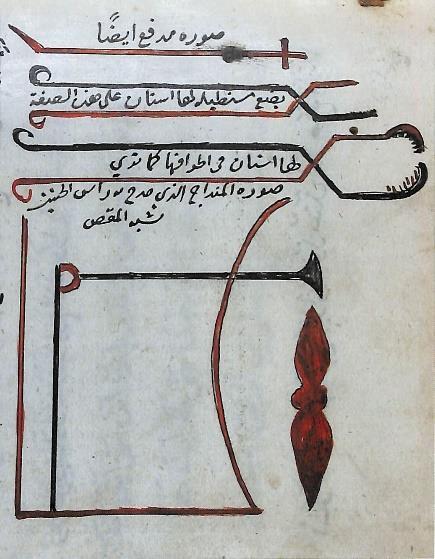 صورة مدفع ايضًا
يضع مستطيله لها اسنان على هذه الصفة
لها اسنان فى اطرافها كما ترى
صورة المشداخ الذى يشدخ به راس الجنين
شبه المقص